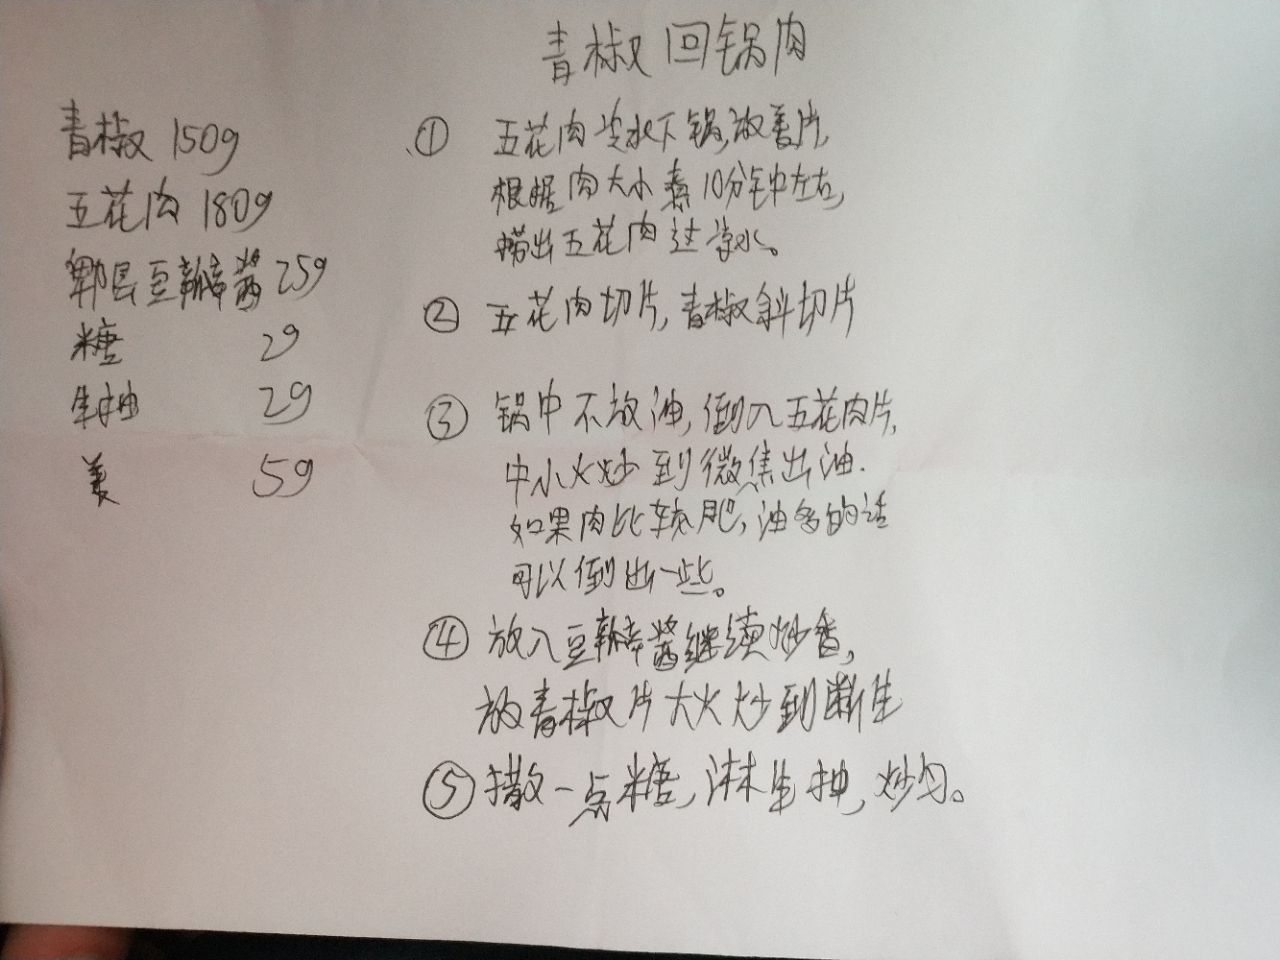 青椒回锅肉
青椒 150g
五花肉 180g
郫县豆瓣酱 25g
糖 2g
生抽 2g
姜 5g
① 五花肉冷水下锅,放姜片,
根据肉大小煮10分钟左右,
捞出五花肉过凉水。
② 五花肉切片,青椒斜切片
③ 锅中不放油,倒入五花肉片,
中小火炒到微焦出油.
如果肉比较肥,油多的话
可以倒出一些。
④ 放入豆瓣酱继续炒香,
放青椒片大火炒到断生
⑤ 撒一点糖,淋生抽,炒匀。